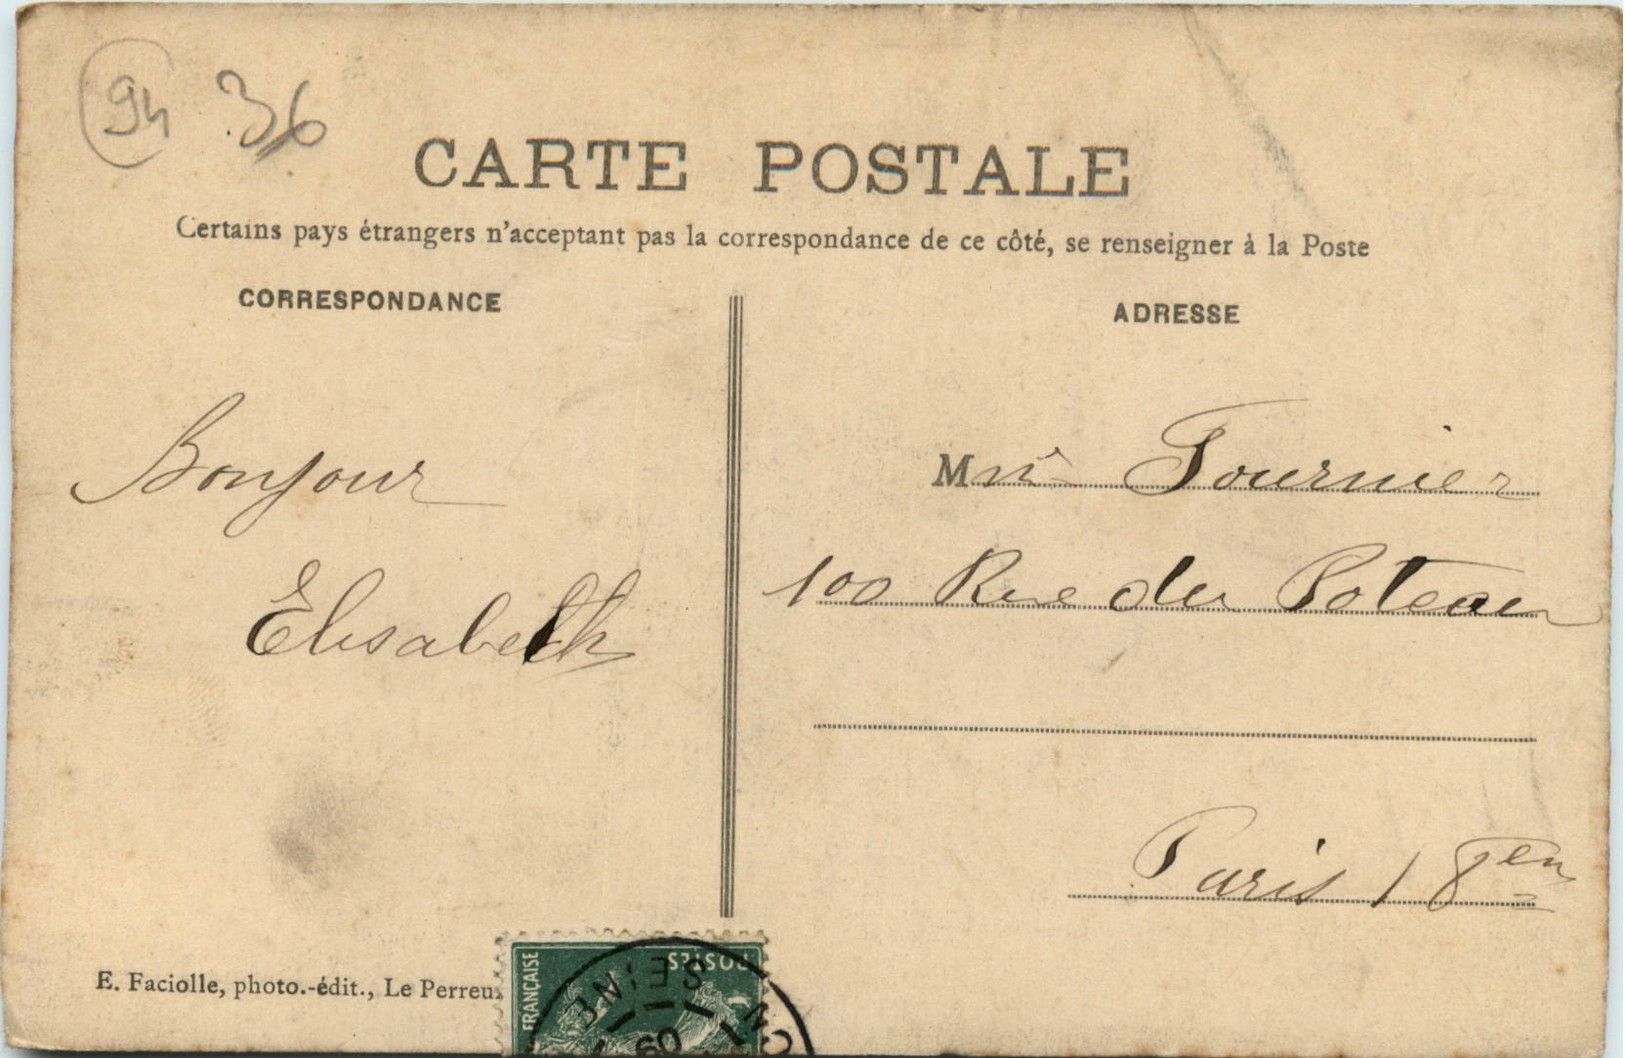 94 36
CARTE POSTALE
Certains pays étrangers n'acceptant pas la correspondance de ce côté, se renseigner à la Poste
CORRESPONDANCE
Bonjour
Elisabeth
ADRESSE
Mme Fournier
100 Rue du Poteau
Paris 18em
E. Faciolle, photo.-édit., Le Perreux
FRANÇAISE
POSTES
SEINE
09